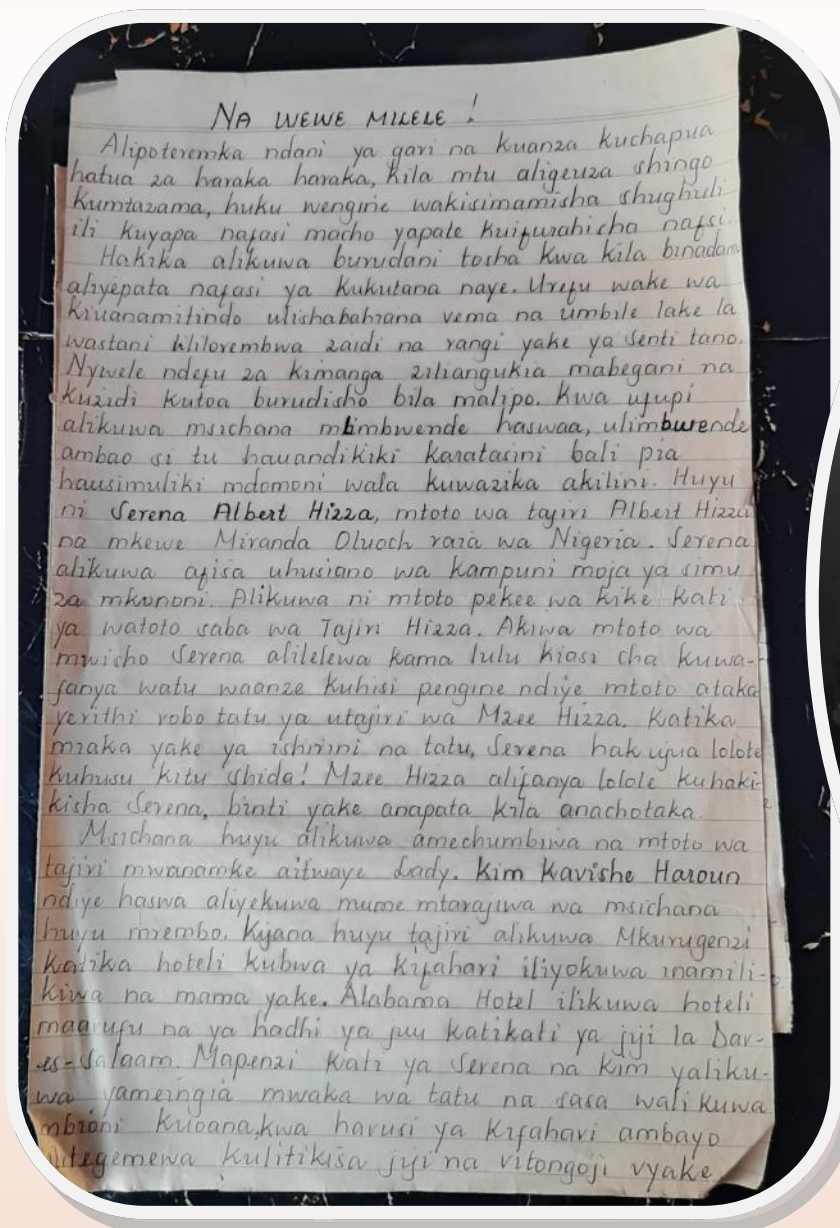 NA WEWE MILELE !
Alipoteremka ndani ya gari na kuanza kuchapua
hatua za haraka haraka, kila mtu aligeuza shingo
kumtazama, huku wengine wakisimamisha shughuli
ili kuyapa nafasi macho yapate kuifurahisha nafsi.
Hakika alikuwa burudani tosha kwa kila binadam
aliyepata nafasi ya kukutana naye. Urefu wake wa
kiuanamitindo ulishabahiana vema na umbile lake la
wastani lililorembwa zaidi na rangi yake ya senti tano.
Nywele ndefu za kimanga ziliangukia mabegani na
kuzidi kutoa burudisho bila malipo. Kwa ufupi
alikuwa msichana mlimbwende haswaa, ulimbwende
ambao si tu hauandikiki karatasini bali pia
hausimuliki mdomoni wala kuwazika akilini. Huyu
ni Serena Albert Hizza, mtoto wa tajiri Albert Hizza
na mkewe Miranda Oluoch raia wa Nigeria. Serena
alikuwa afisa uhusiano wa kampuni moja ya simu
za mkononi. Alikuwa ni mtoto pekee wa kike kati
ya watoto saba wa Tajiri Hizza. Akiwa mtoto wa
mwisho Serena alilelewa kama lulu kiasi cha kuwa-
fanya watu waanze kuhisi pengine ndiye mtoto ataka
yerithi robo tatu ya utajiri wa Mzee Hizza. Katika
miaka yake ya ishirini na tatu, Serena hakujua lolote
kuhusu kitu shida! Mzee Hizza alifanya lolote kuhaki-
kisha Serena, binti yake anapata kila anachotaka.
Msichana huyu alikuwa amechumbiwa na mtoto wa
tajiri mwanamke aitwaye Lady. Kim Kavishe Haroun
ndiye haswa aliyekuwa mume mtarajiwa wa msichana
huyu mrembo. Kijana huyu tajiri alikuwa Mkurugenzi
katika hoteli kubwa ya kifahari iliyokuwa inamili-
kiwa na mama yake. Alabama Hotel ilikuwa hoteli
maarufu na ya hadhi ya juu katikati ya jiji la Dar-
es-salaam. Mapenzi kati ya Serena na Kim yaliku-
wa yameingia mwaka wa tatu na sasa walikuwa
mbioni kuoana, kwa harusi ya kifahari ambayo
kulitikisa jiji na vitongoji vyake